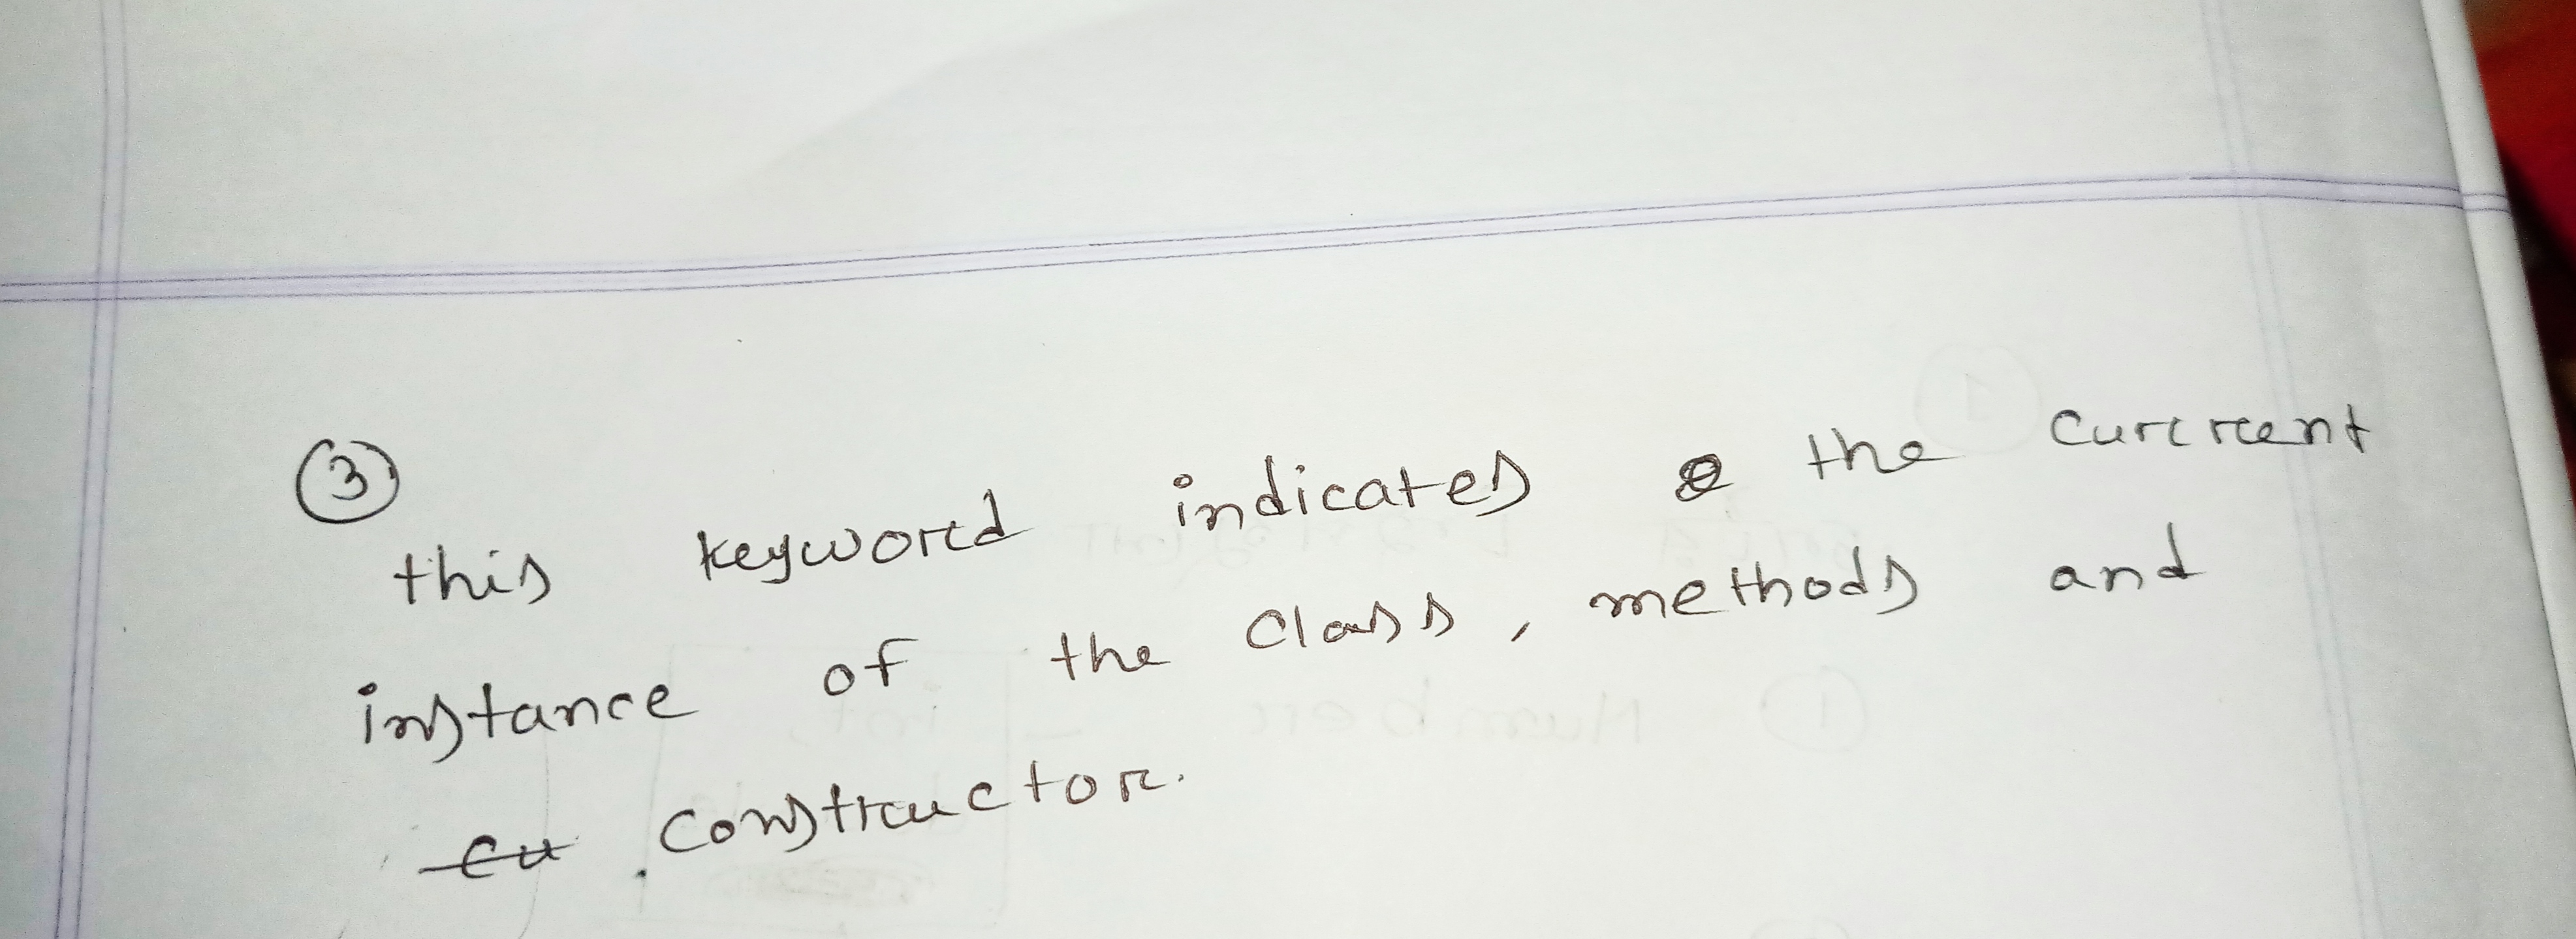 3
this keyword indicates the current
instance of the class, methods and
constructor.